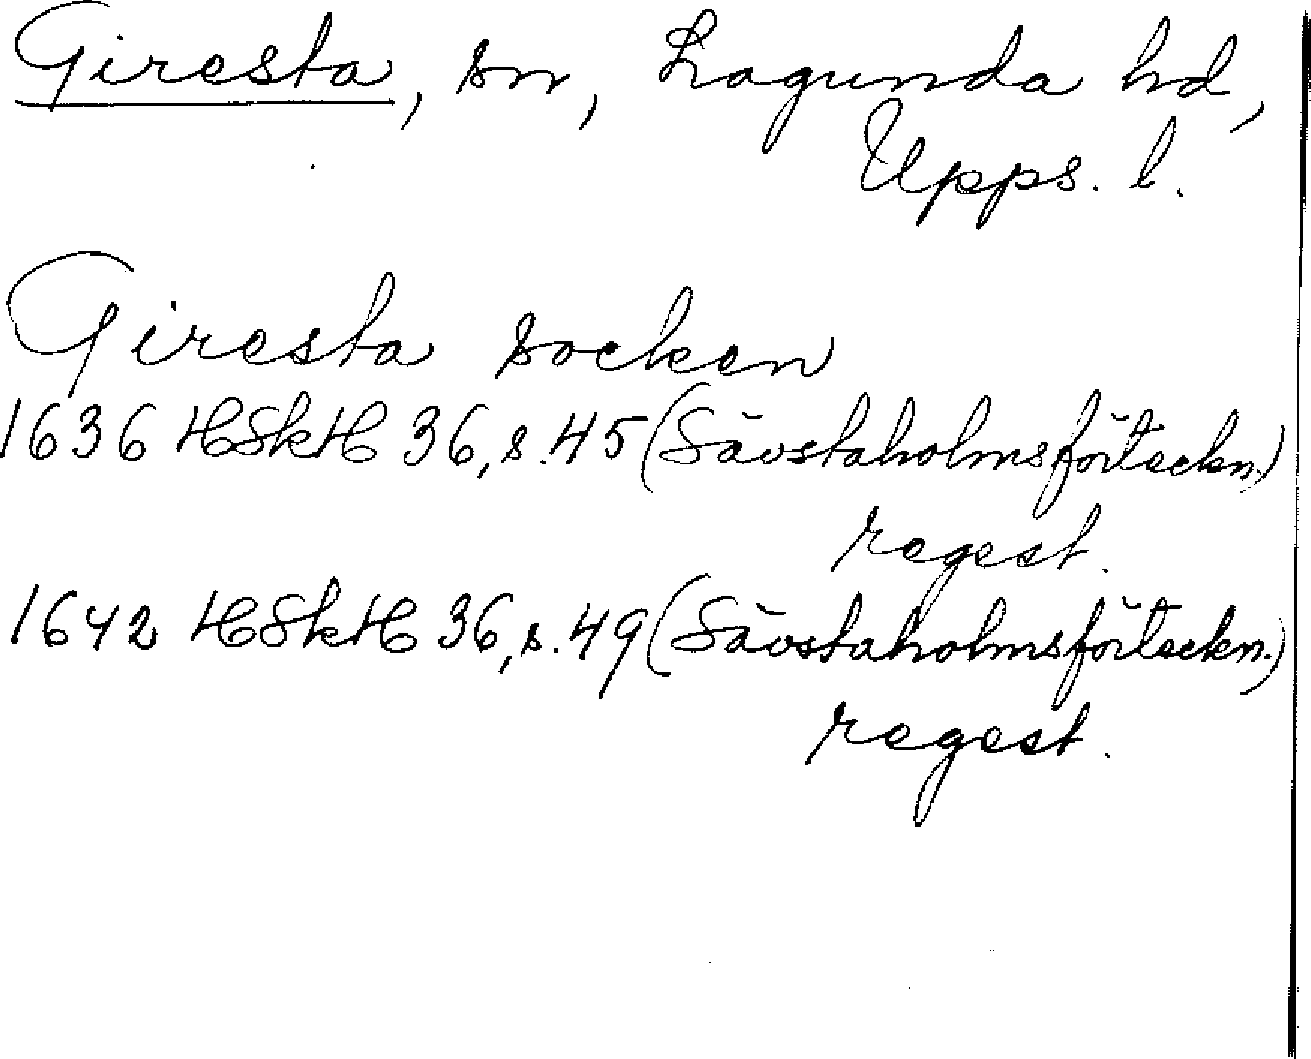 Giresta, sn, Lagunda hd,
Upps. l.
Giresta socken
1636 HSkH 36, s. 45 (Sävstaholmsförteckn.)
regest.
1642 HSkH 36, s. 49 (Sävstaholmsförteckn.)
regest.